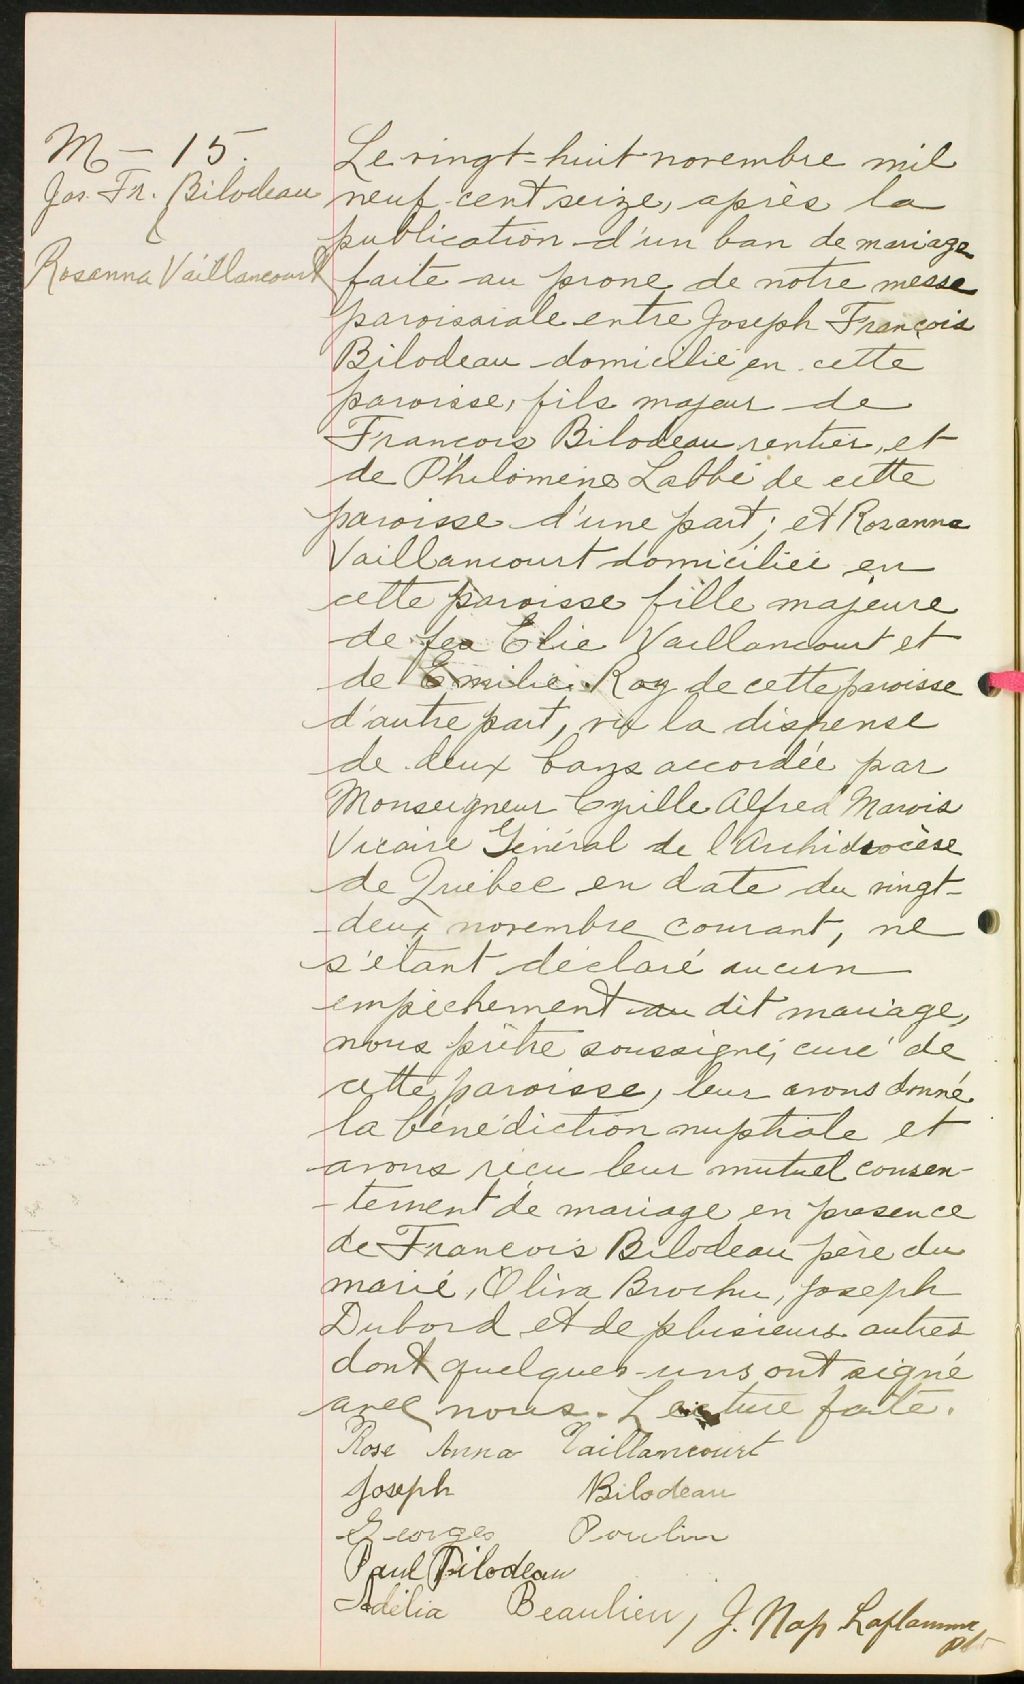 M – 15.
Jos. Fr. Bilodeau
Rosanna Vaillancourt
Le vingt-huit novembre mil
neuf cent seize, après la
publication d'un ban de mariage
faite au prone de notre messe
paroissiale entre Joseph François
Bilodeau domicilié en cette
paroisse, fils majeur de
François Bilodeau rentier, et
de Philomène Labbé de cette
paroisse d'une part; et Rosanna
Vaillancourt domiciliée en
cette paroisse fille majeure
de feu Elie Vaillancourt et
de Emilie Roy de cette paroisse
d'autre part, vu la dispense
de deux bans accordée par
Monseigneur Cyrille Alfred Marois
Vicaire Général de l'Archidiocèse
de Québec en date du vingt-
-deux novembre courant, ne
s'étant déclaré aucun
empêchement au dit mariage,
nous prêtre soussigné, curé de
cette paroisse, leur avons donné
la bénédiction nuptiale et
avons reçu leur mutuel consen-
-tement de mariage en presence
de François Bilodeau père du
marié, Oliva Brochu, Joseph
Dubord et de plusieurs autres
dont quelques-uns ont signé
avec nous. Lecture faite.
Rose Anna Vaillancourt
Joseph Bilodeau
Georges Poulin
Paul Bilodeau
Adélia Beaulieu, J. Nap Laflamme
Pt